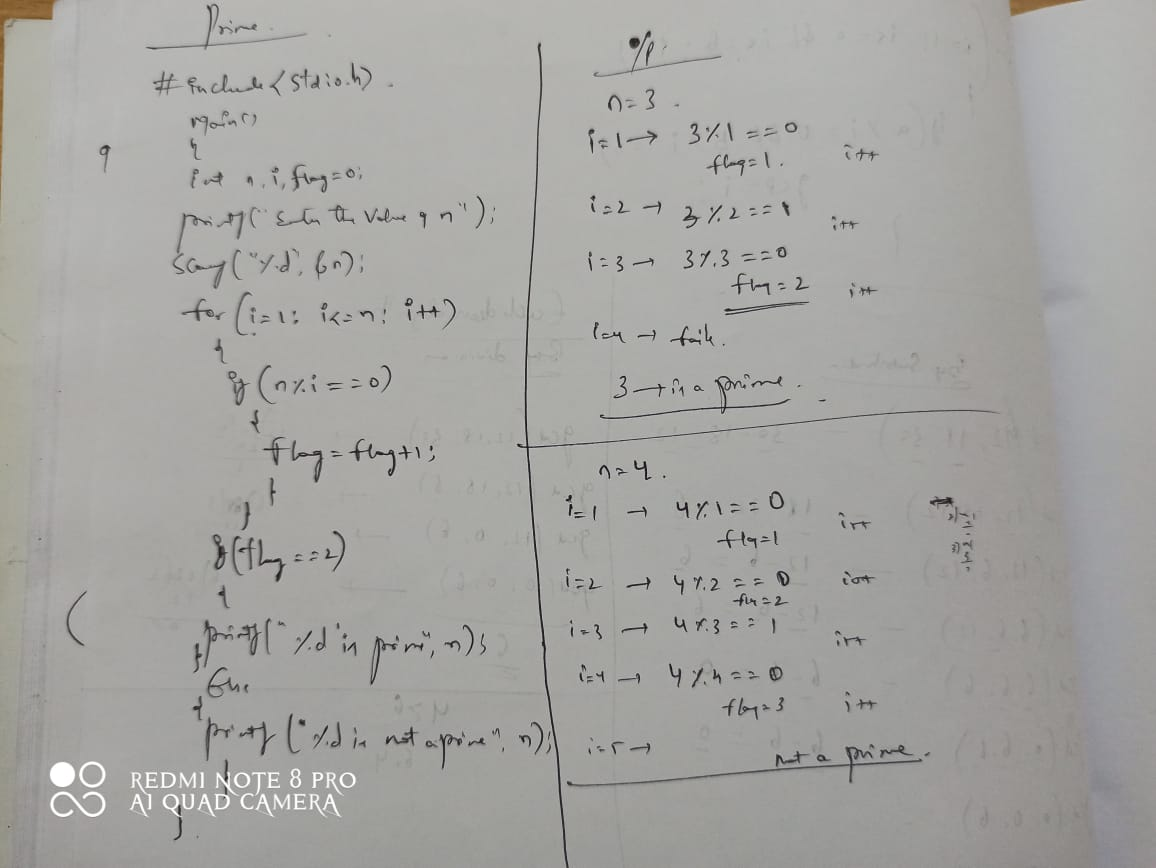 Prime.
#include<stdio.h>.
main()
{
int n, i, flag=0;
printf("Enter the Value of n");
scanf("%d", &n);
for (i=1; i<=n; i++)
{
if (n%i==0)
{
flag=flag+1;
}
}
if(flag==2)
{
printf("%d is prime", n);
}
Else
{
printf("%d is not a prime", n);
}
}
o/p.
n=3.
i=1→ 3%1==0
flag=1. i++
i=2→ 3%2==1 i++
i=3→ 3%3==0
flag=2 i++
i=4→ fail.
3→is a prime.
n=4.
i=1 → 4%1==0 i++
flag=1
i=2 → 4%2==0 i++
flag=2
i=3 → 4%3==1 i++
i=4 → 4%4==0
flag=3 i++
i=5→ not a prime.
REDMI NOTE 8 PRO
AI QUAD CAMERA